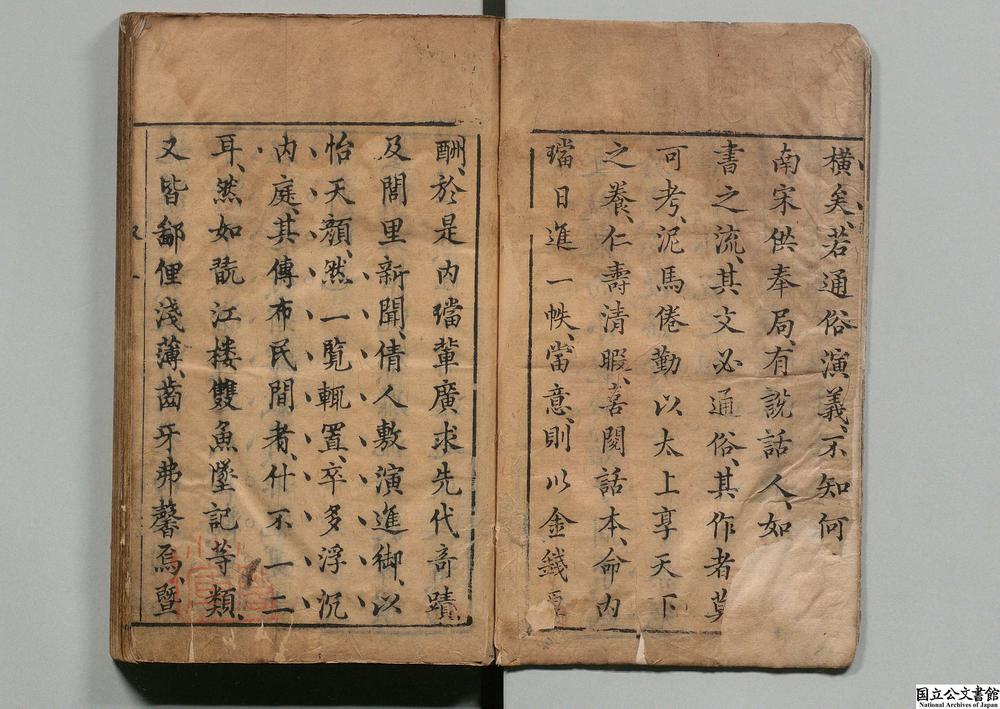 橫矣、若通俗演義、不知何
南宋供奉局、有說話人、如
書之流、其文必通俗、其作者莫
可考、泥馬倦勤、以太上享天下
之養、仁壽清暇、喜閱話本、命內
璫日進一帙、當意、則以金錢厚
酬、於是內璫輩廣求先代奇蹟、
及閭里新聞、倩人敷演進御、以
怡天顏、然一覽輒置、卒多浮沉
內庭、其傳布民間者、什不一二
耳、然如翫江楼雙魚墜記等類、
又皆鄙俚淺薄、齒牙弗馨焉、暨
国立公文書館
National Archives of Japan